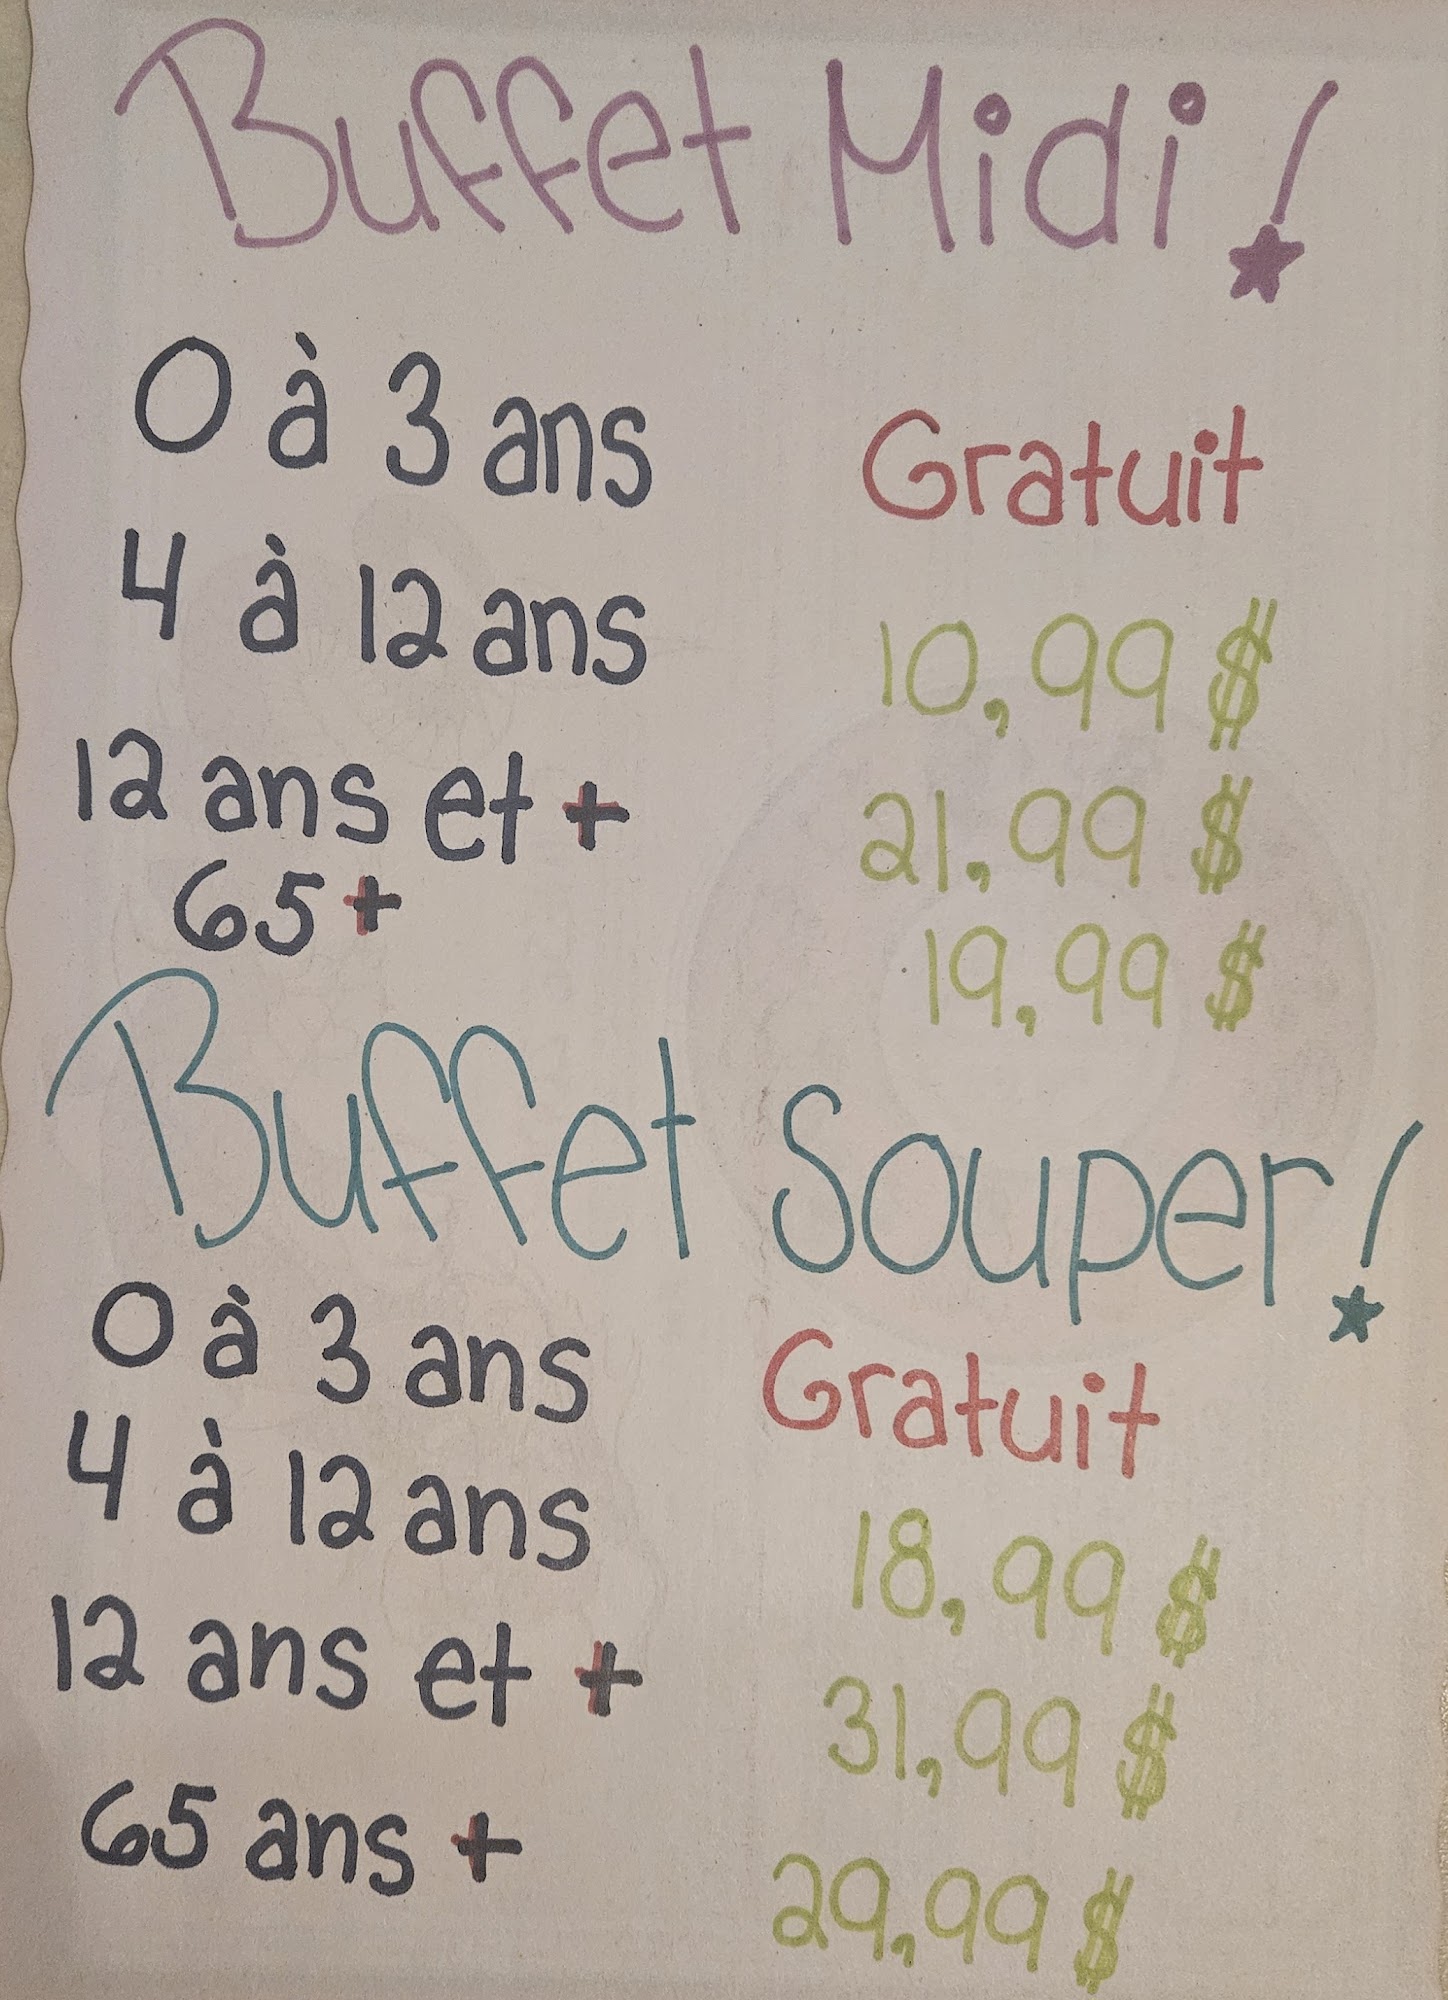 Buffet Midi!
0 à 3 ans Gratuit
4 à 12 ans 10,99 $
12 ans et + 21,99 $
65 + 19,99 $
Buffet Souper!
0 à 3 ans Gratuit
4 à 12 ans 18,99 $
12 ans et + 31,99 $
65 ans + 29,99 $